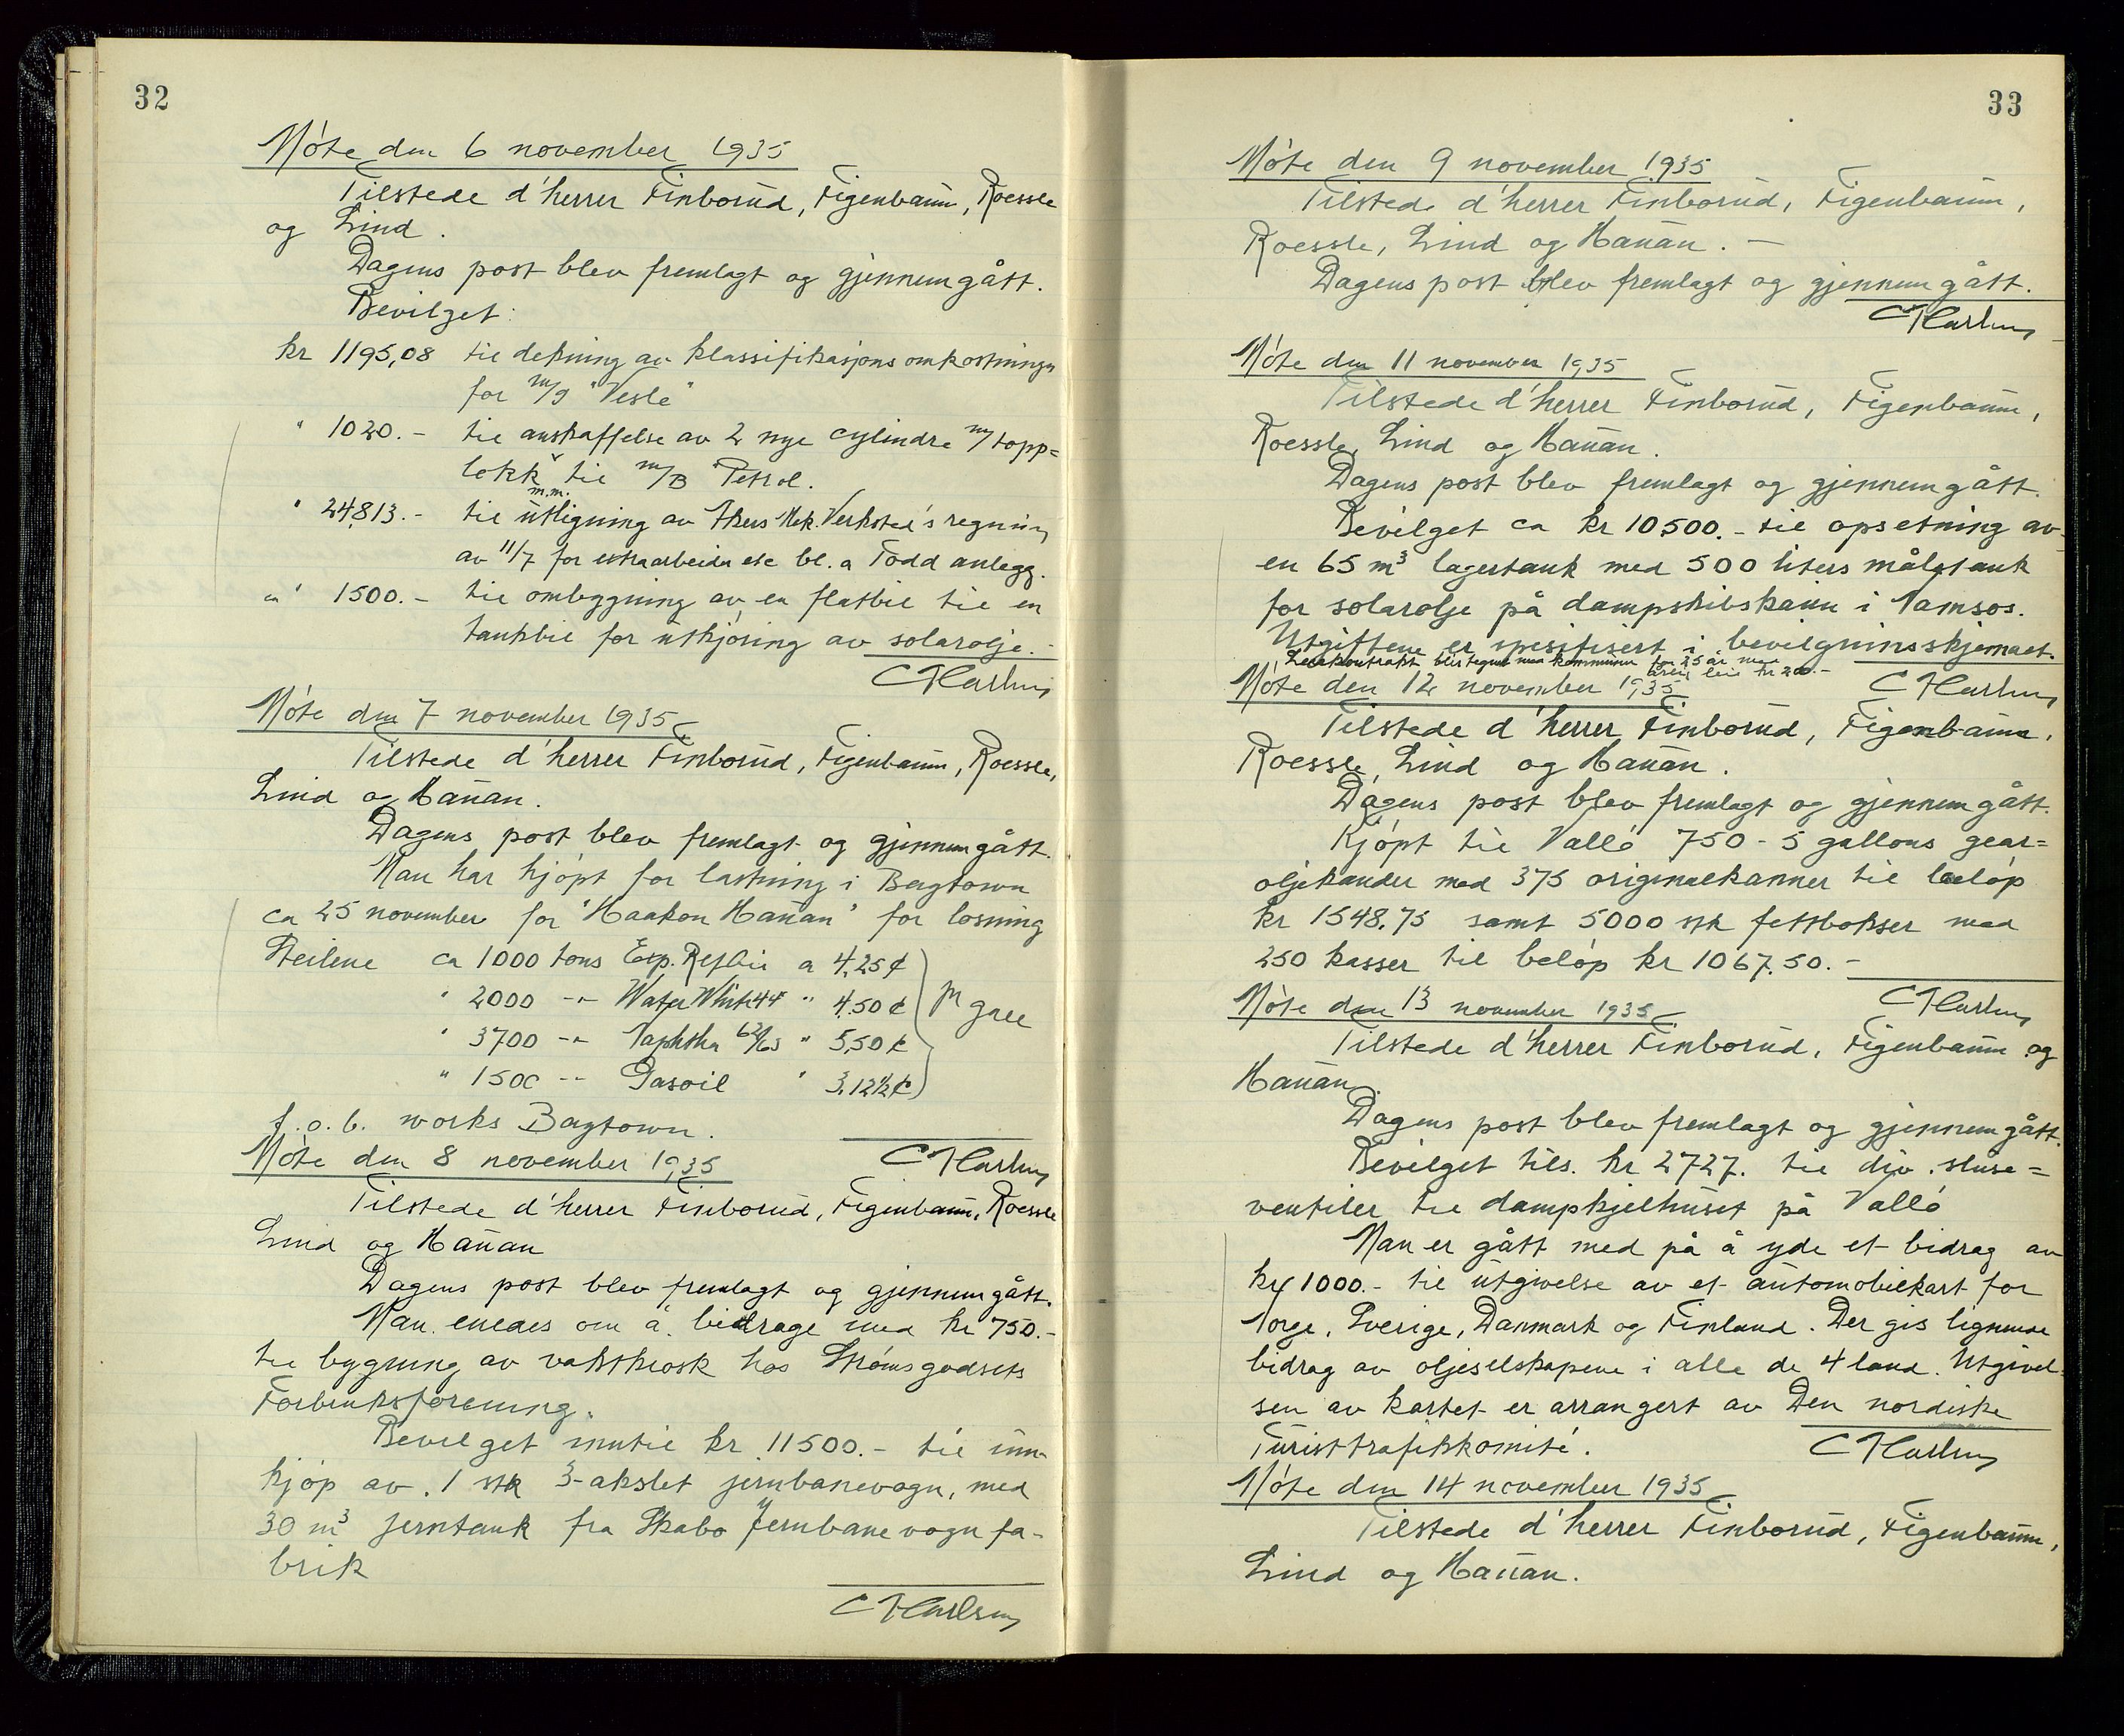 32
Møte den 6 november 1935
Tilstede d'herrer Finborud, Figenbaum, Roessle
og Lind.
Dagens post blev fremlagt og gjennemgått.
Bevilget:
kr 1195,08 til dekning av klassifikasjonsomkostninger
for m/g "Vesle"
" 1020.- til anskaffelse av 2 nye cylindre m/topp=
lokk til m/B "Petrol.
m.m.
" 24813.- til utligning av Akers Mek. Verksted's regning
av 11/7 for ekstraarbeider etc bl. a Todd anlegg.
" 1500.- til ombygning av en flatbil til en
tankbil for utkjøring av solarolje.-
CHarlsen
Møte den 7 november 1935
Tilstede d'herrer Finborud, Figenbaum, Roessle,
Lind og Hauan.
Dagens post blev fremlagt og gjennemgått.
Man har kjøpt for lastning i Baytown
ca 25 november for "Haakon Hauan" for losning
Steilene ca 1000 tons Esp. a 4,25 ¢
" 2000 -"- Water White 44 " 4.50 ¢
" 3700 -"- Naphtha 62/63 " 5,50 ¢
pr gall
" 1500 -"- Gasoil " 3.12½ ¢
f.o.b. works Baytown.
CHarlsen
Møte den 8 november 1935
Tilstede d'herrer Finborud, Figenbaum, Roessle
Lind og Hauan
Dagens post blev fremlagt og gjennemgått.
Man enedes om å bidrage med kr 750.-
til bygning av vaktkiosk hos Strømsgodsets
Forbruksforening.
Bevilget inntil kr 11500.- til inn-
kjøp av 1 stk 3-akslet jernbanevogn, med
30 m³ jerntank fra Skabo Jernbanevognfa-
brik
CHarlsen
33
Møte den 9 november 1935
Tilstede d'herrer Finborud, Figenbaum,
Roessle, Lind og Hauan. -
Dagens post blev fremlagt og gjennemgått.
CHarlsen
Møte den 11 november 1935
Tilstede d'herrer Finborud, Figenbaum,
Roessle, Lind og Hauan.
Dagens post blev fremlagt og gjennemgått.
Bevilget ca kr 10500.- til opsetning av
en 65 m³ lagertank med 500 liters måletank
for solarolje på dampskibskaien i Namsos.
Utgiftene er spesifisert i bevilgninsskjemaet.
Leiekontrakt blir tegnet med kommunen for 25 år med
årlig leie kr 200.-
Møte den 12 november 1935
CHarlsen
Tilstede d'herrer Finborud, Figenbaum,
Roessle, Lind og Hauan.
Dagens post blev fremlagt og gjennemgått.
Kjøpt til Vallø 750 - 5 gallons gear=
oljekander med 375 originalkanner til beløp
kr 1548.75 samt 5000 stk fettbokser med
250 kasser til beløp kr 1067.50.-
CHarlsen
Møte den 13 november 1935
Tilstede d'herrer Finborud, Figenbaum og
Hauan.
Dagens post blev fremlagt og gjennemgått.
Bevilget tils. kr 2727. til div. sluse=
ventiler til dampkjelhuset på Vallø
Man er gått med på å yde et bidrag av
kr 1000.- til utgivelse av et automobilkart for
Norge, Sverige, Danmark og Finland. Der gis lignende
bidrag av oljeselskapene i alle de 4 land. Utgivel-
sen av kartet er arrangert av Den nordiske
Turisttrafikkomité.
CHarlsen
Møte den 14 november 1935
Tilstede d'herrer Finborud, Figenbaum,
Lind og Hauan.